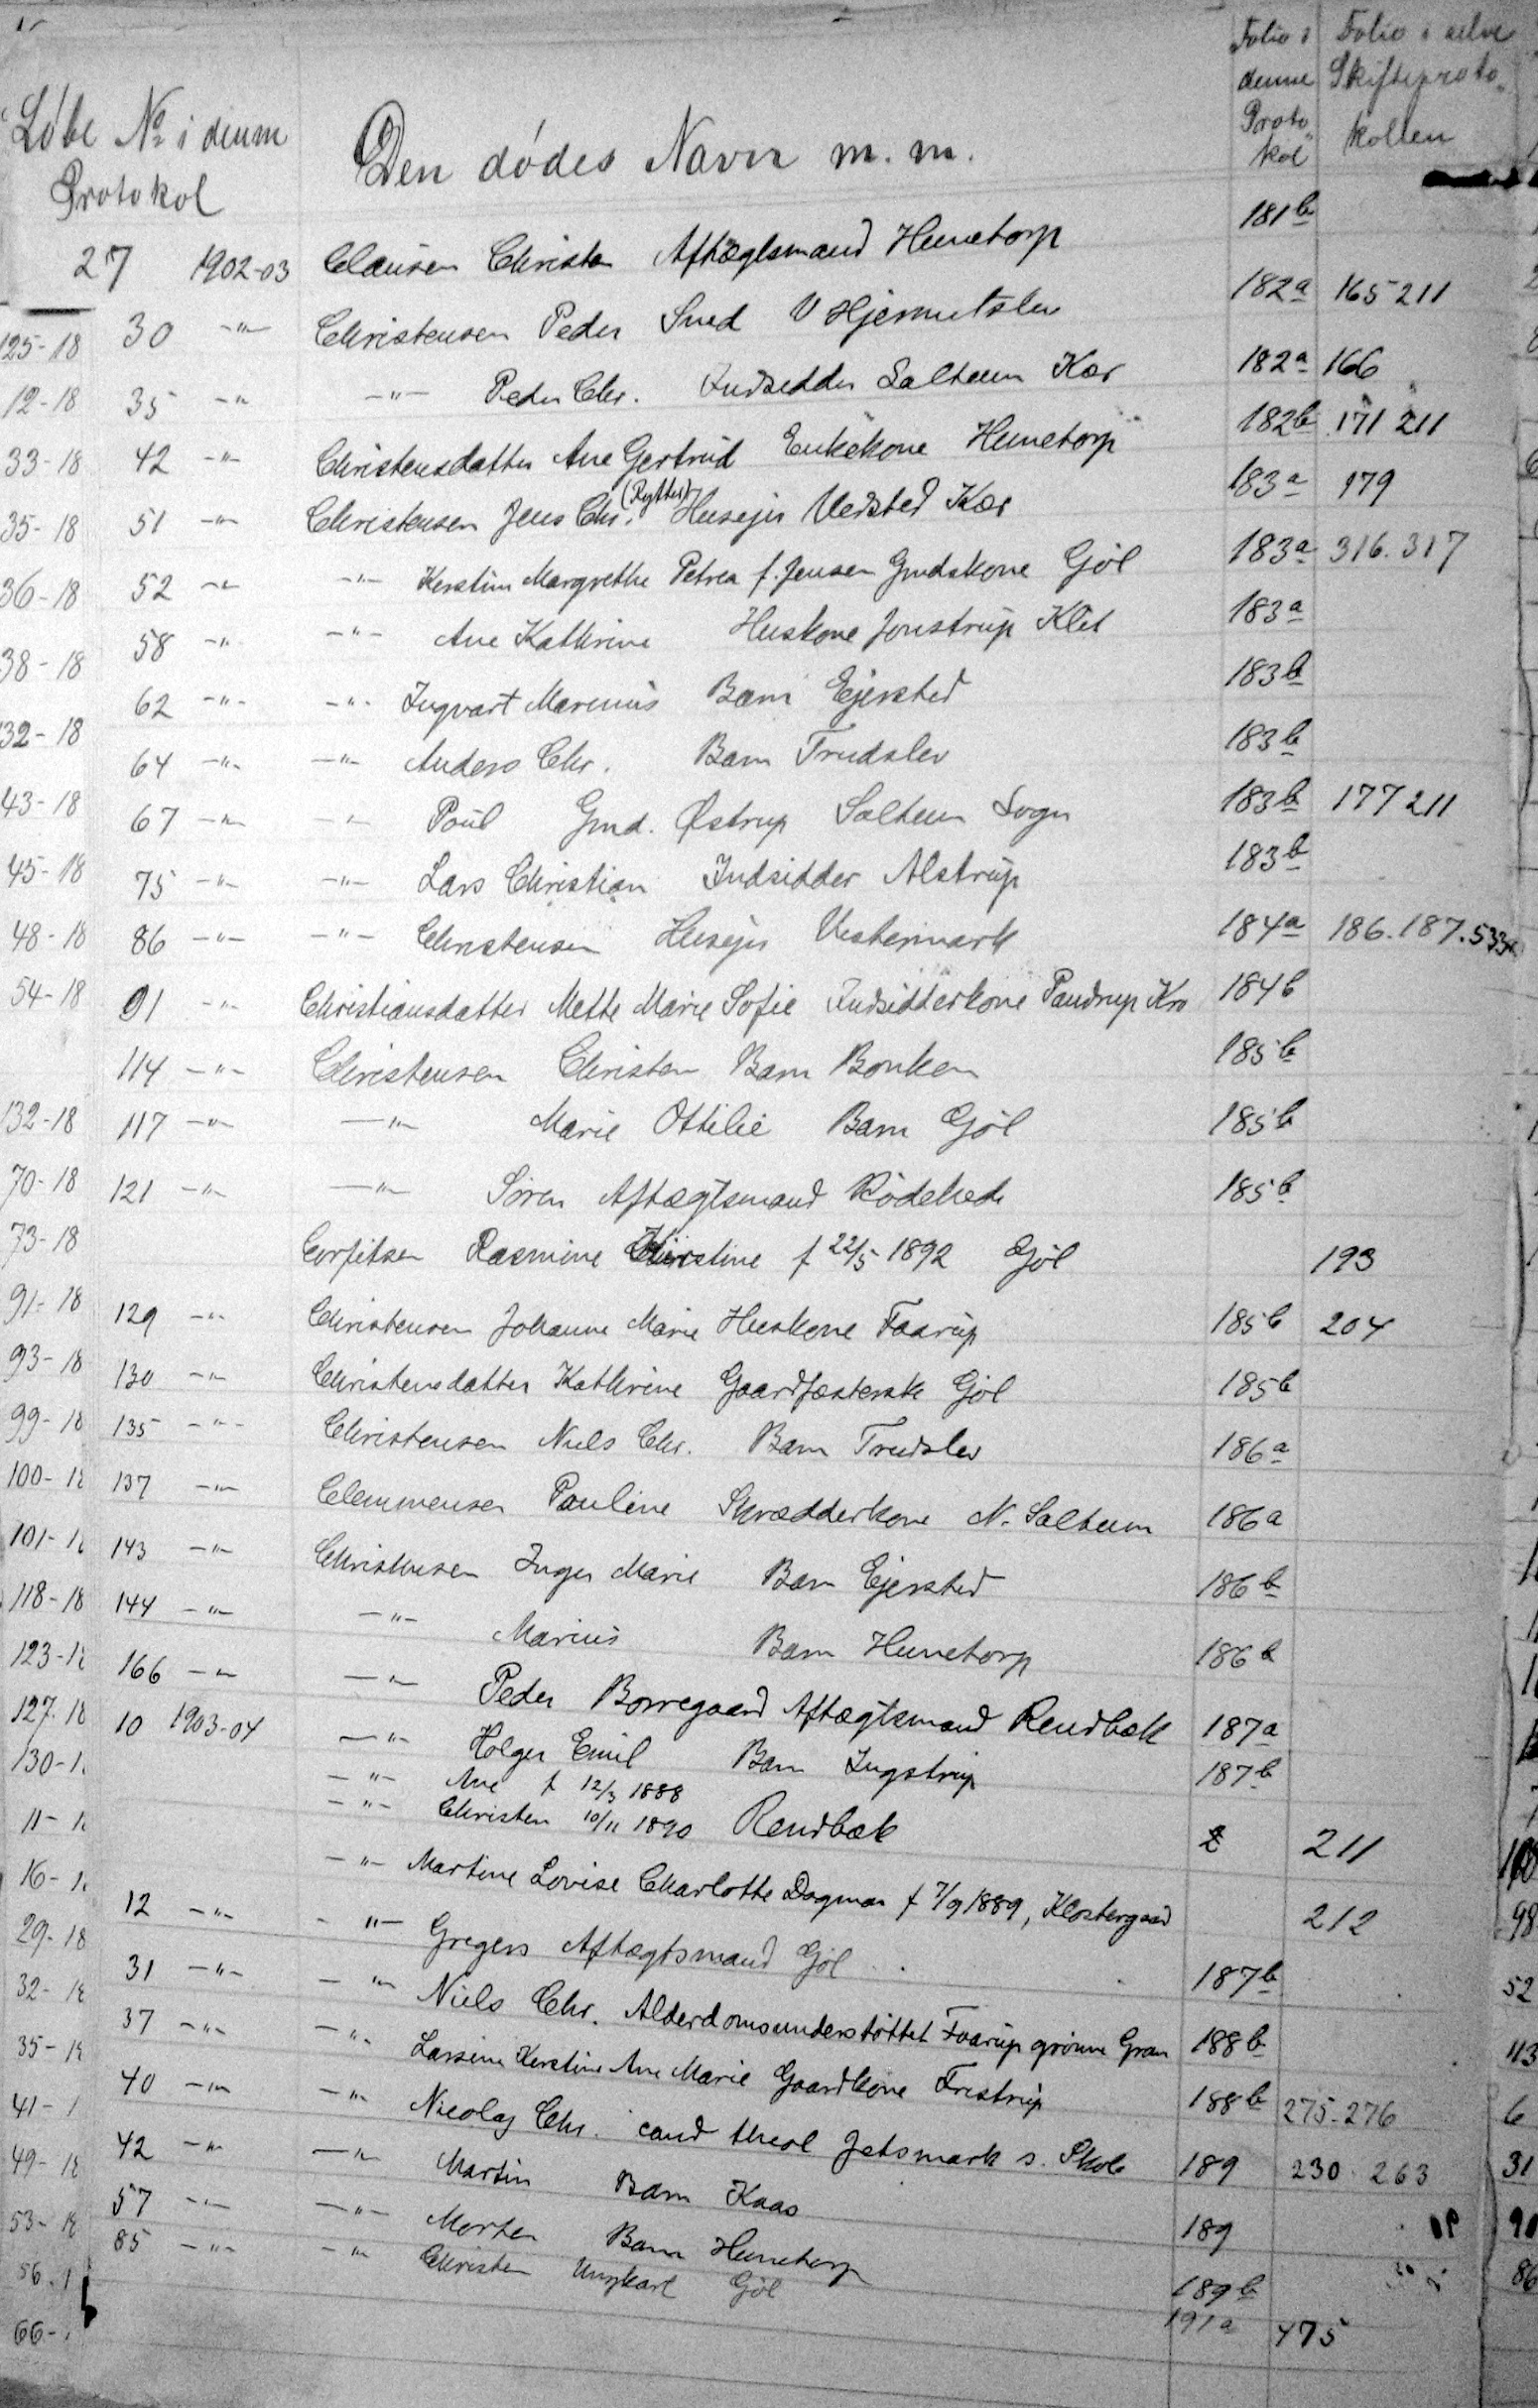 Løbe № i denne Protokol | Den dødes Navn m. m. | Folio i denne Protokol | Folio i selve Skifteprotokollen
27 1902-03 Clausen Christen Aftægtsmand Hunetorp 181b
125-18 30 -"- Christensen Peder Smed V Hjermitslev 182a 165 211
12-18 35 -"- -"- Peder Chr. Indsidder Saltum Kær 182a 166
33-18 42 -"- Christensdatter Ane Gertrud Enkekone Hunetorp 182b 171 211
35-18 51 -"- Christensen Jens Chr. (Rytter) Husejer Vedsted Kær 183a 179
36-18 52 -"- -"- Kerstine Margrethe Petrea f. Jensen Gmdskone Gjøl 183a 316. 317
38-18 58 -"- -"- Ane Kathrine Huskone Jonstrup Klit 183a
62 -"- -"- Ingvart Marinus Barn Ejersted 183b
132-18 64 -"- -"- Anders Chr. Barn Trudslev 183b
43-18 67 -"- -"- Poul Gmd. Østrup Saltum Sogn 183b 177 211
45-18 75 -"- -"- Lars Christian Indsidder Alstrup 183b
48-18 86 -"- -"- Christensen Husejer Vestermark 184a 186. 187. 533
54-18 91 -"- Christiansdatter Mette Marie Sofie Indsidderkone Pandrup Kro 184b
114 -"- Christensen Christen Barn Bonken 185b
132-18 117 -"- -"- Marie Ottilie Barn Gjøl 185b
70-18 121 -"- -"- Søren Aftægtsmand Rødehede 185b
73-18 Corfitzen Rasmine Kirstine † 22/5 1892 Gjøl 193
91-18 129 -"- Christensen Johanne Marie Huskone Faarup 185b 204
93-18 130 -"- Christensdatter Kathrine Gaardfæsterske Gjøl 185b
99-18 135 -"- Christensen Niels Chr. Barn Trudslev 186a
100-18 137 -"- Clemmensen Pauline Skrædderkone N. Saltum 186a
101-1 143 -"- Christensen Inger Marie Barn Ejersted 186b
118-18 144 -"- -"- Marius Barn Hunetorp 186b
123-18 166 -"- -"- Peder Borregaard Aftægtsmand Rendbæk 187a
127-18 10 1903-04 -"- Holger Emil Barn Ingstrup 187b
130-1 -"- Ane † 12/3 1888
-"- Christen 10/11 1890 Rendbæk 211
11-1 -"- Martine Lovise Charlotte Dagmar † 7/9 1889, Klostergaard 212
16-1 12 -"- -"- Gregers Aftægtsmand Gjøl 187b
29-18 31 -"- -"- Niels Chr. Alderdomsunderstøttet Faarup grønne Gran 188b
32-18 37 -"- -"- Larsine Kerstine Ane Marie Gaardkone Fristrup 188b 275-276
35-18 40 -"- -"- Nicolaj Chr. cand theol Jetsmark s. Skole 189 230. 263
41-1 42 -"- -"- Martin Barn Kaas 189
49-18 57 -"- -"- Morten Barn Hunetorp 189b
53-18 85 -"- -"- Christen Ungkarl Gjøl 191a 475
56-1
66-